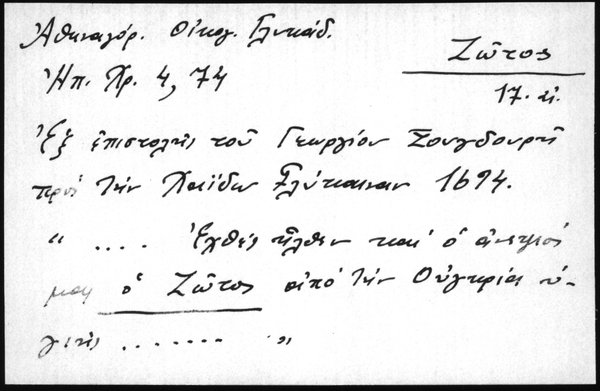 Ἀθηναγόρ. Οἰκογ. Γλυκάδ.
Ζῶτος
Ἠπ. Χρ. 4, 74
17. αἰ.
Ἐξ ἐπιστολῆς τοῦ Γεωργίου Σουγδουρῆ
πρός τήν Χαϊδω Γλύκαιναν 1694.
" .... Ἐχθές ἦλθεν καί ὁ ἀνεψιός
μου ὁ Ζῶτος ἀπό τήν Οὐγκρίαν ὑ-
γιής ....... "